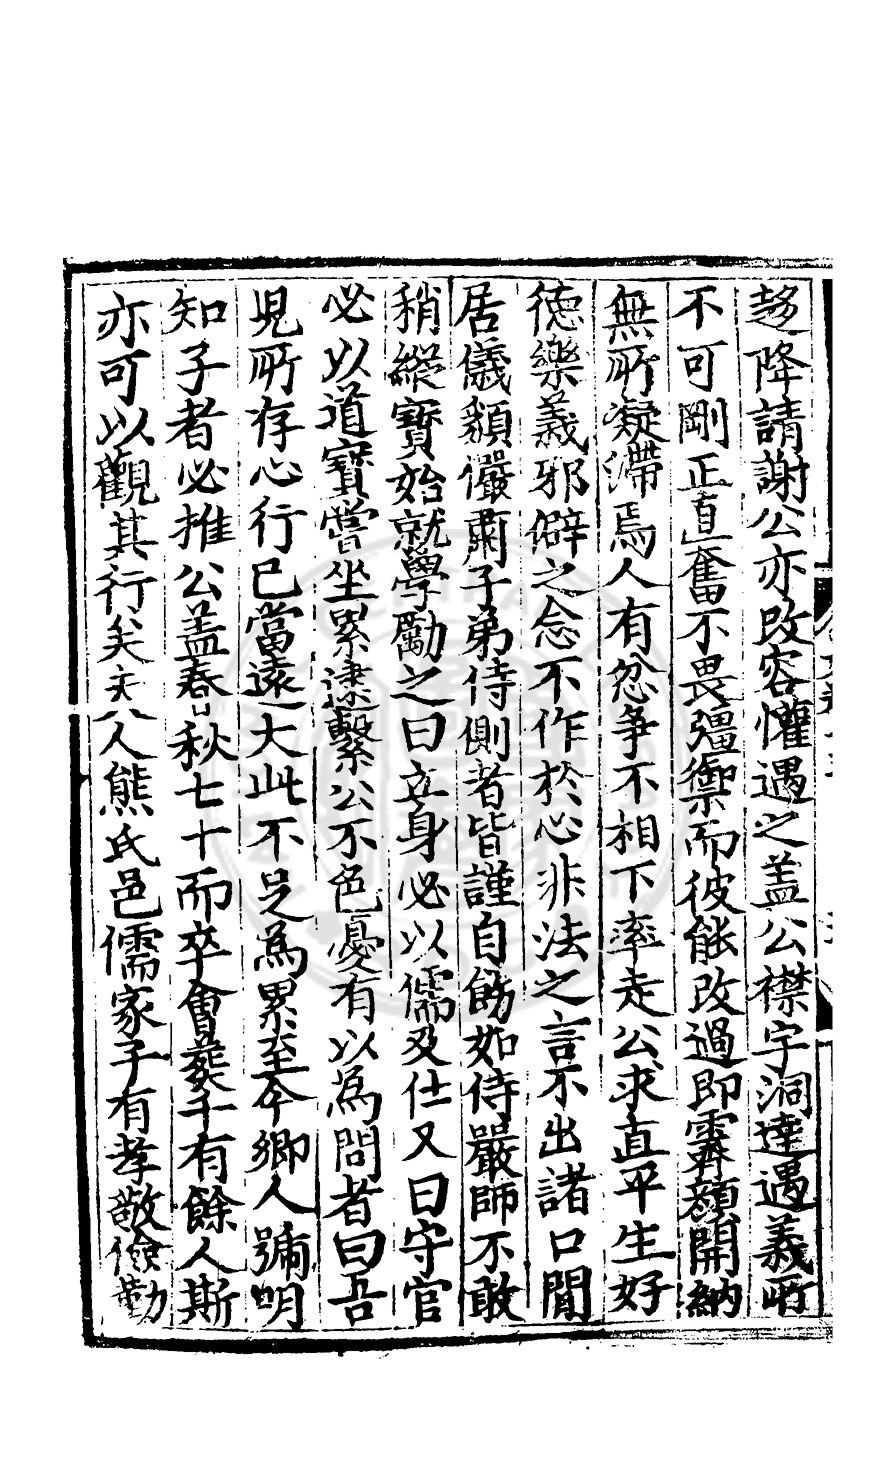 趍降請謝公亦改容懽遇之盖公襟宇洞達遇義所
不可剛正直奮不畏彊禦而彼能改過即霽顔開納
無所凝滯焉人有忿争不相下率走公求直平生好
徳樂義邪僻之念不作於心非法之言不出諸口閒
居儀貌儼肅子弟侍側者皆謹自飭如侍嚴師不敢
稍縱寳始就學勵之曰立身必以儒及仕又曰守官
必以道寳嘗坐累逮繫公不色憂有以為問者曰吾
児所存心行已當逺大此不足為累至今郷人號明
知子者必推公盖春秋七十而卒會葬千有餘人斯
亦可以觀其行矣夫人熊氏邑儒家子有孝敬儉勤